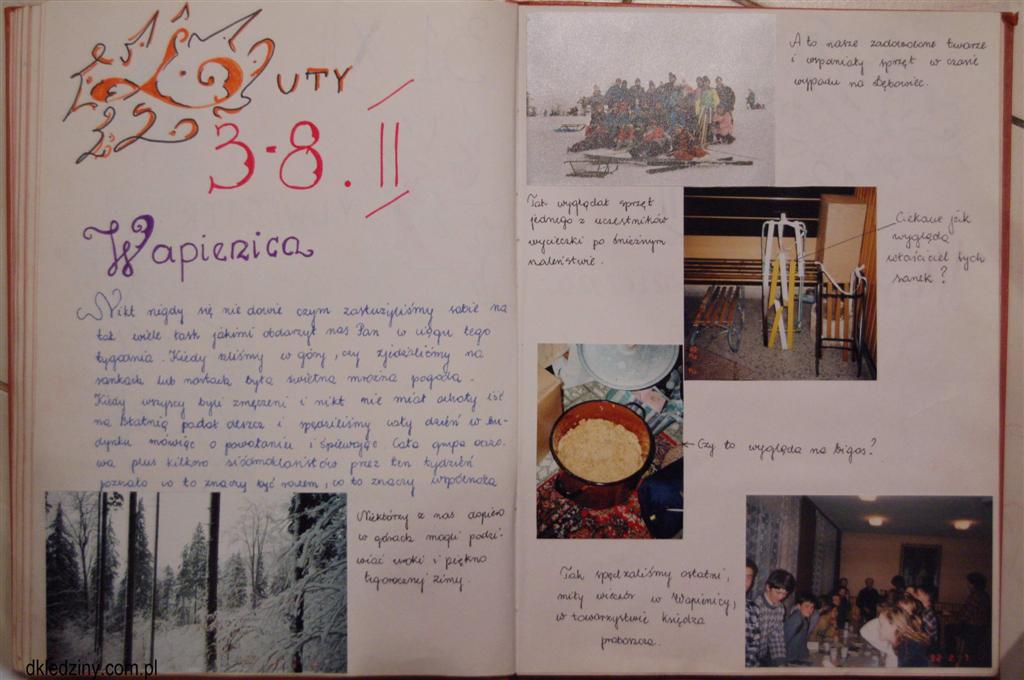 LUTY
3-8. II
Wapienica
Nikt nigdy się nie dowie czym zasłużyliśmy sobie na
tak wiele łask jakimi obdarzył nas Pan w ciągu tego
tygodnia. Kiedy szliśmy w góry, czy zjeżdżaliśmy na
sankach lub nartach była świetna mroźna pogoda.
Kiedy wszyscy byli zmęczeni i nikt nie miał ochoty iść
na Błatnią padał deszcz i spędziliśmy cały dzień w bu-
dynku mówiąc o powołaniu i śpiewając. Cała grupa oazo-
wa plus kilkoro siódmoklasistów przez ten tydzień
poznało co to znaczy być razem, co to znaczy wspólnota
Niektórzy z nas dopiero
w górach mogli podzi-
wiać uroki i piękno
tegorocznej zimy.
dkledziny.com.pl
A to nasze zadowolone twarze
i wspaniały sprzęt w czasie
wypadu na Dębowiec.
Tak wyglądał sprzęt
jednego z uczestników
wycieczki po śnieżnym
szaleństwie.
Ciekawe jak
wygląda
właściciel tych
sanek?
Czy to wygląda na bigos?
Tak spędzaliśmy ostatni,
miły wieczór w Wapienicy,
w towarzystwie księdza
proboszcza.
92 2 7